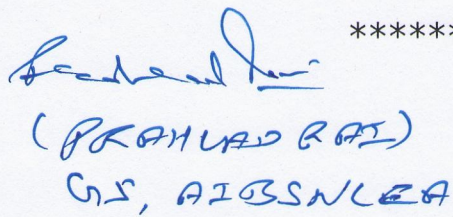 ******
(PRAHLAD RAI)
GS, AIBSNLEA